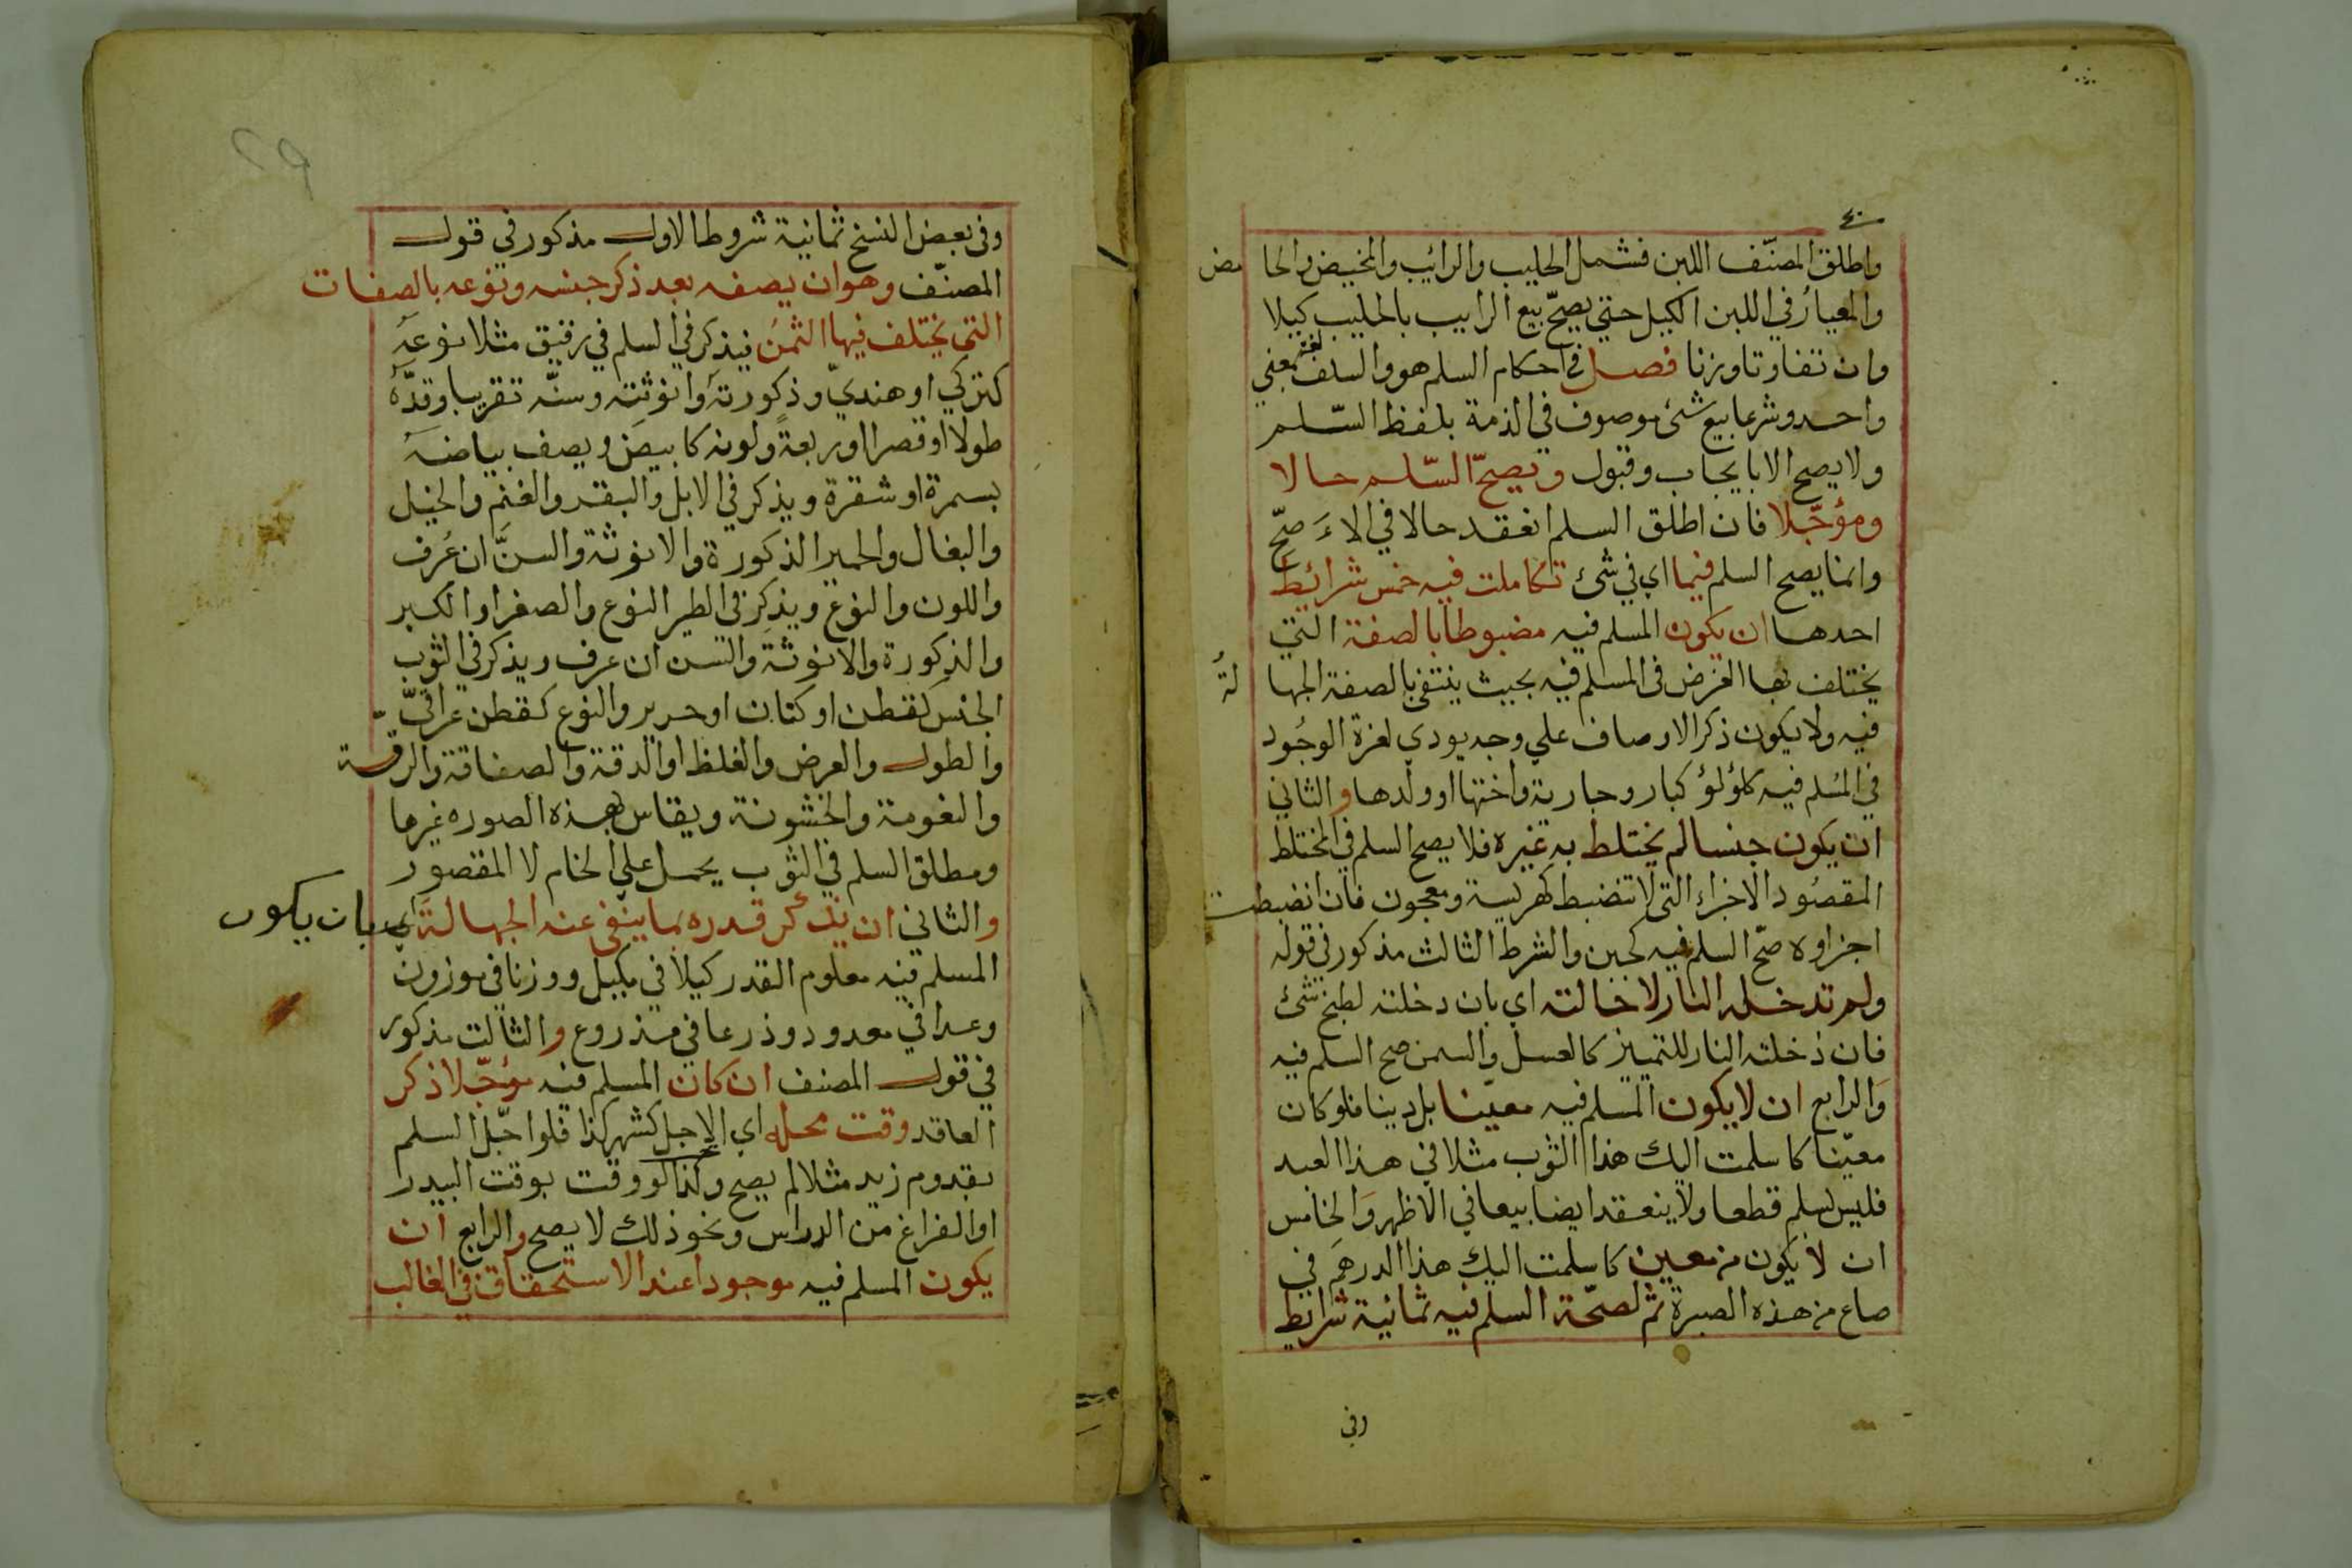 واطلق المصنّف اللبن فشمل الحليب والرائب والمخيض والحامض
والمعيارُ في اللبن الكيل حتي يصحّ بيع الرايب بالحليب كيلا
وان تفاوتا وزنا فصل في احكام السلم هو والسلف لغة بمعني
واحد وشرعا بيع شئ موصوف في الذمة بلفظ السّلم
ولا يصح الا بايجاب وقبول ويصحّ السّلم حالا
ومؤجّلا فان اطلق السلم انعقد حالا في الاءَ صحّ
وانما يصح السلم فيما اي في شئ تكاملت فيه خمس شرائط
احدها ان يكون المسلم فيه مضبوطا بالصفة التي
يختلف بها الغرض في المسلم فيه بحيث ينتفي بالصفة الجهالةُ
فيه ولا يكون ذكر الاوصاف علي وجه يودي لعزة الوجُود
في المسُلم فيه كلؤلؤ كبار وجارية واختها او ولدها والثاني
ان يكون جنسا لم يختلط به غيره فلا يصح السلم في المختلط
المقصُود الاجزاء التي لا تنضبط كهريسة ومعجون فان انضبطت
اجزاوه صحّ السلم فيه كجبن والشرط الثالث مذكور في قوله
ولم تدخله النار لاحالته اي بان دخلته لطبخ شئ
فان دخلته النار للتمييز كالعسل والسمن صح السلم فيه
وَالرابع ان لا يكون المسلم فيه معيّنا بل دينا فلو كان
معيّنا كاسلمت اليك هذا الثوب مثلا في هذا العبد
فليس بسلم قطعا ولا ينعقد ايضا بيعا في الاظهر وَالخامس
ان لا يكون من معين كاسلمت اليك هذا الدرهَم في
صاع من هذه الصبرة ثم لصحّة السلم فيه ثمانية شرايط
وفي
وفي بعض النسخ ثمانية شروط الاول مذكور في قول
المصنّف وهو ان يصفه بعد ذكر جنسه ونوعه بالصفات
التي يختلف فيها الثمنُ فيذكر في السلم في رقيق مثلا نوعهَ
كتركي او هنديّ وذكورتهَ وانوثته وسنّه تقريبا وقدّهَ
طولا او قصرا او ربعةً ولونه كابيضَ ويصف بياضهَ
بسمرة او شقرة ويذكر في الابل والبقر والغنم والخيل
والبغال والحمير الذكورة والانوثة والسنَّ ان عُرف
واللون والنوع ويذكر في الطير النوع والصغر او الكبر
والذكورة والانوثة والسن ان عرف ويذكر في الثوب
الجنس كقطن او كتان او حرير والنوع كقطن عراقيّ
والطول والعرض والغلظ او الدقة والصفاقة والرقّة
والنعومة والخشونة ويقاس بهذه الصوره غيرها
ومطلق السلم في الثوب يحمل علي الخام لا المقصور
والثاني ان يذكر قدره بما ينفي عنه الجهالةَ اي بان يكون
المسلم فيه معلوم القدر كيلا في مكيل ووزنا في موزون
وعدا في معدود وذرعا في مذروع والثالث مذكور
في قول المصنف ان كان المسلم فيه مؤجّلا ذكر
العاقد وقت محله اي الاجل كشهر كذا فلو اجّل السلم
بقدوم زيد مثلا لم يصح وكذا لو وقت بوقت البيدر
او الفراغ من الدراس ونحو ذلك لا يصح والرابع ان
يكون المسلم فيه موجودا عند الاستحقاق في الغالب